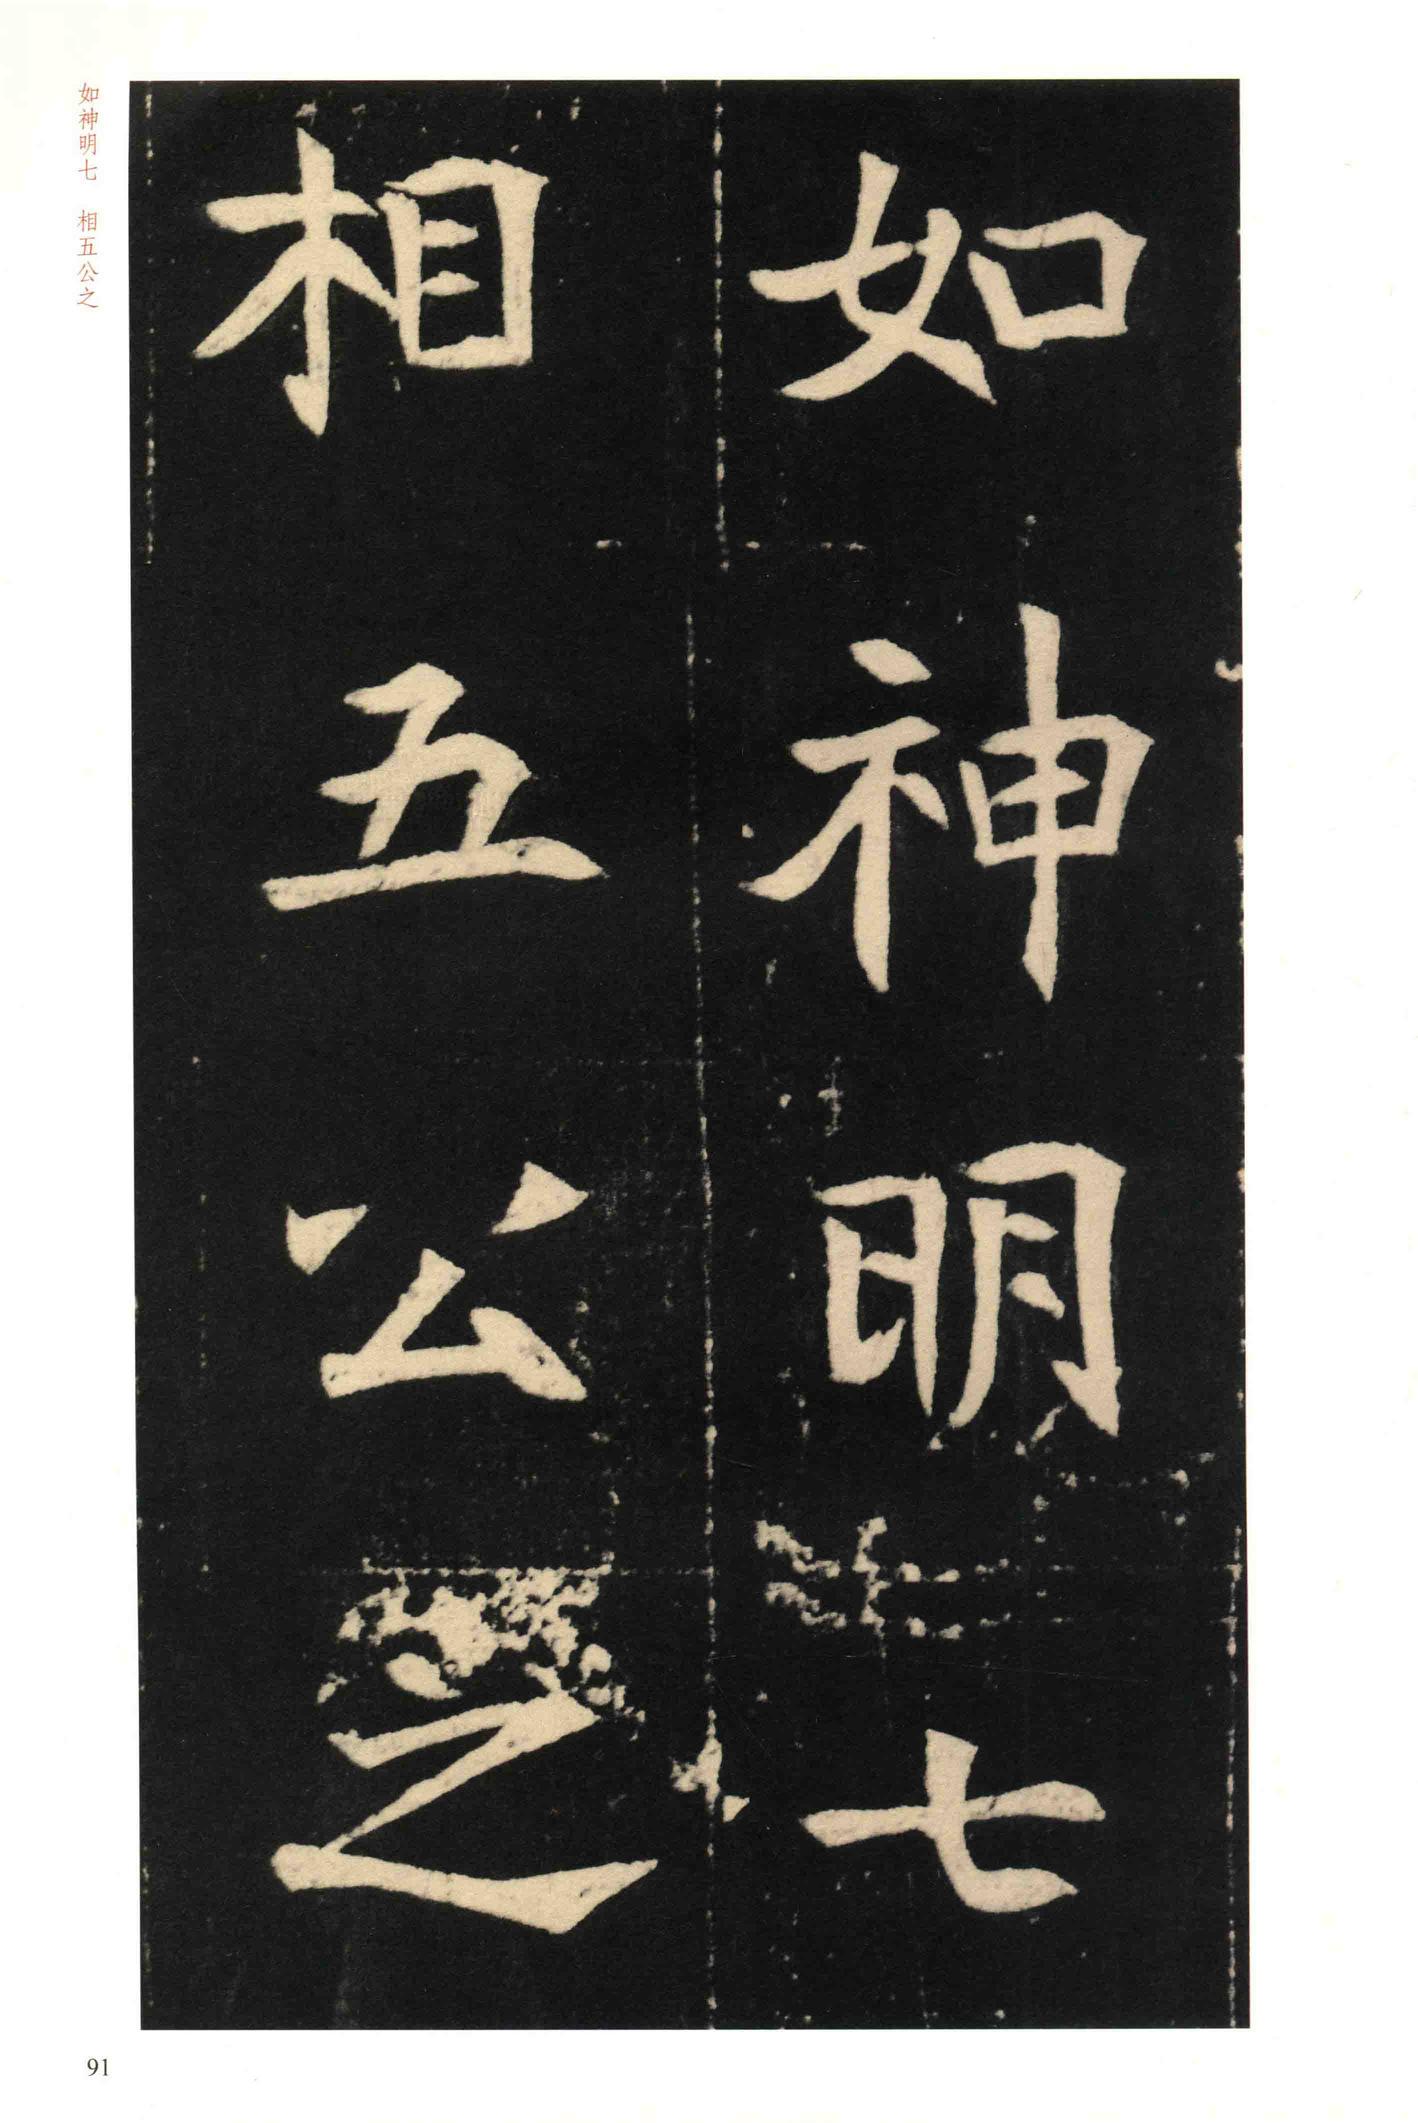 如神明七
相五公之
如神明七 相五公之
91